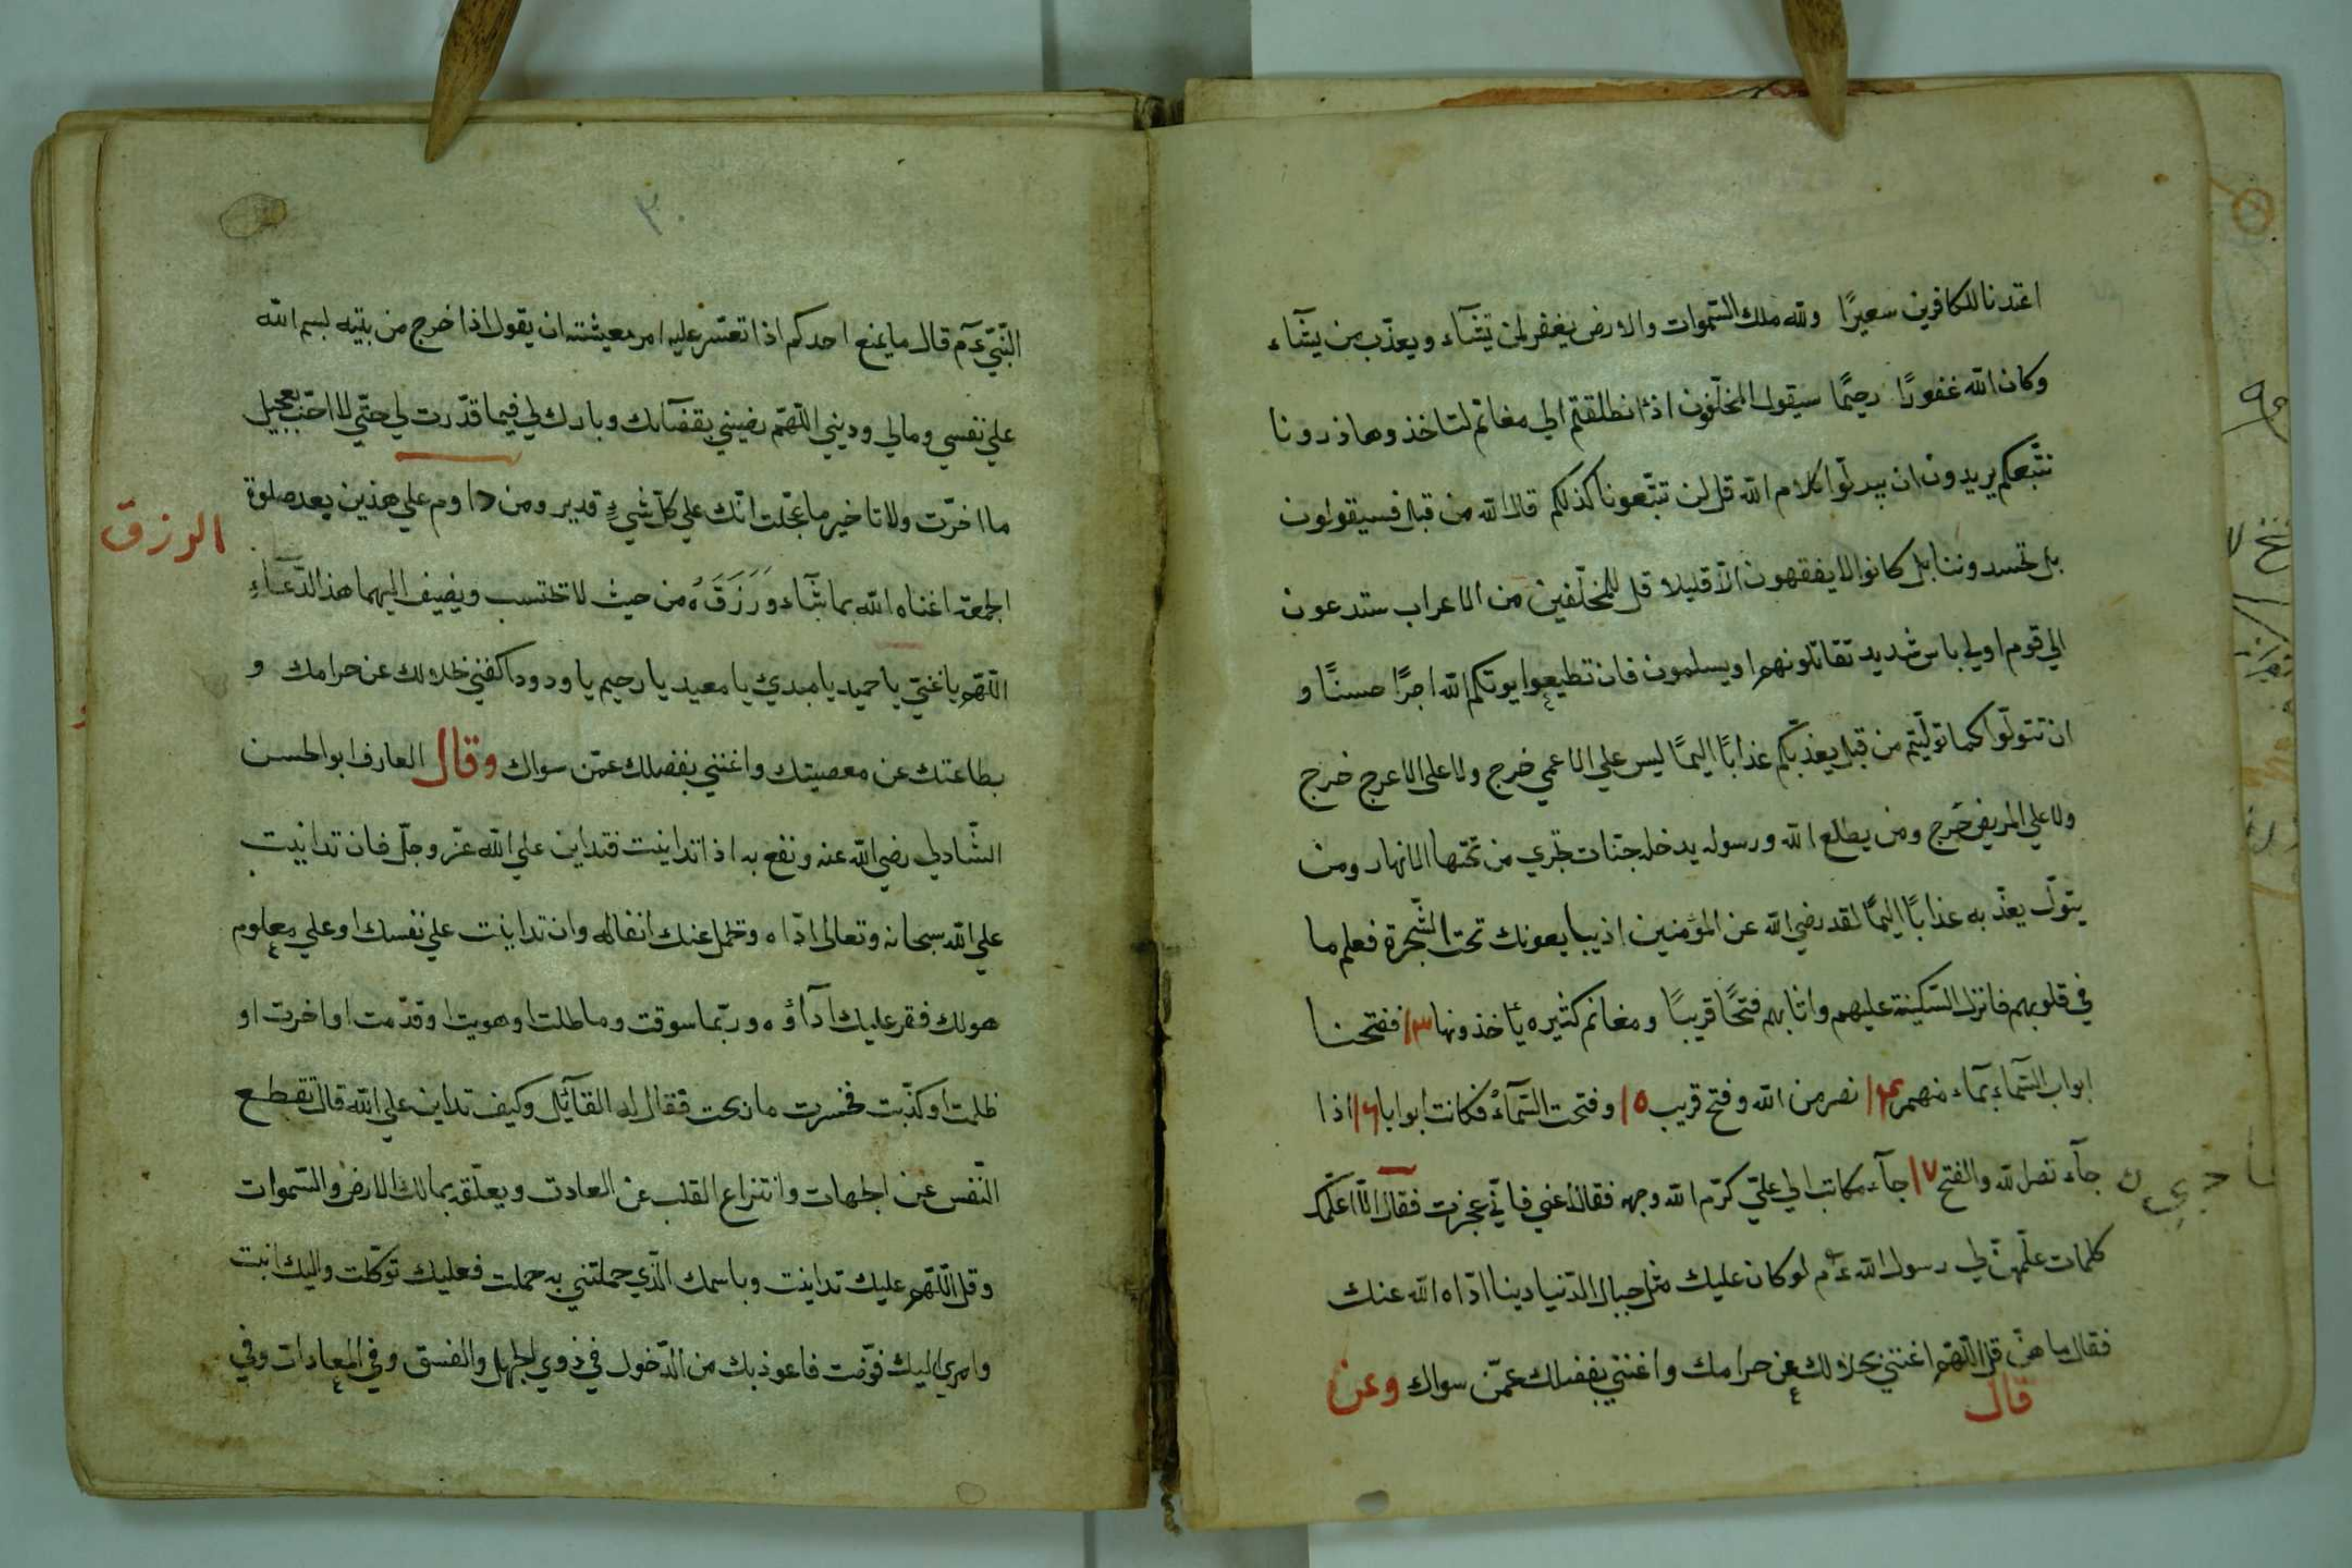 اعتدنا للكافرين سعيرًا ولله ملك السّموات والارض يغفر لمن يّشآء ويعذّب من يشآء
وكان الله غفورًا رحيمًا سيقول المخلّفون اذا انطلقتم الي مغانم لتاخذوها ذرونا
نتّبعكم يريدون ان يبدلّوا كلام الله قل لن تتّبعونا كذلكم قال الله من قبل فسيقولون
بل تحسدوننا بل كانوا لا يفقهون الّا قليلا قل للمخلّفين من الاعراب ستدعون
الي قوم اولي باس شديد تقاتلونهم او يسلمون فان تطيعوا يوتكم الله اجرًا حسنًا و
ان تتولّوا كما تولّيتم من قبل يعذبّكم عذابًا اليمًا ليس علي الاعمي خرج ولا علي الاعرج خرج
ولا علي المريض خرج ومن يطلع الله ورسوله يدخله جنّات تجري من تحتها الانهار ومن
يتولّ يعذّبه عذابًا اليمًا لقد رضي الله عن المؤمنين اذ يبايعونك تحت الشّجرة فعلم ما
في قلوبهم فانزل السّكينة عليهم واثابهم فتحًا قريبًا ومغانم كثيره يأخذونها ١٣ ففتحنا
ابواب السّماء بمآء منهمر ١٤ نصر من الله وفتح قريب ١٥ وفتحت السّمآءُ فكانت ابوابا ١٦ اذا
جآء نصر الله والفتح ١٧ جآء مكاتب الي عليّ كرّم الله وجهه فقال اغني فانّي عجزت فقال الّا اعلّمك
كلمات علّمهنّ لي رسول الله عم لو كان عليك مثل جبال الدّنيا دينا ادّاه الله عنك
فقال ما هنّ قل اللّهم اغنني بحلالك عن حرامك واغنني بفضلك عمّن سواك وعن
قال
٣٠
النّبيّ عم قال ما يمنع احدكم اذا تعسّر عليه امر معيشته ان يقول اذا خرج من بيته بسم الله
علي نفسي ومالي وديني اللّهمّ رضيني بقضآىك وبارك لي فيما قدّرت لي حتّي لا احبّ تعجيل
ما اخرّت ولا تاخير ما عجّلت انّك علي كلّ شيء قدير ومن داوم علي هذين بعد صلوة
الرزق
الجمعة اغناه الله بما شآء وَرَزَقَهُ من حيث لا تحتسب ويضيف اليهما هذا الدّعآء
اللّهم يا غنيّ يا حميد يا مبديُ يا معيد يا رحيم يا ودود اكفني بحلالك عن حرامك و
بطاعتك عن معصيتك واغنني بفضلك عمّن سواك وقال العارف ابو الحسن
الشّادلي رضي الله عنه ونفع به اذا تداينت فتداين علي الله عزّ وجلّ فان تداينت
علي الله سبحانه وتعالي ادّاه وتحمل عنك اثقاله وان تداينت علي نفسك او علي معلوم
هو لك فقر عليك ادآؤه وربّما سوقت وماطلت او هويت او قدّمت او اخرت او
ظلمت او كذّبت فخسرت ما ربحت فقال له القآئل وكيف تداين علي الله قال تقطع
النّفس عن الجهات وانتزاع القلب عن العادت ويعلّقه بمالك الارض والسّموات
وقل اللّهم عليك تداينت وباسمك الّذي حملتني به حملت فعليك توكّلت واليك انبت
وامري اليك فوّضت فاعوذ بك من الدّخول في ذوي الجهل والفسق وفي المعادات وفي